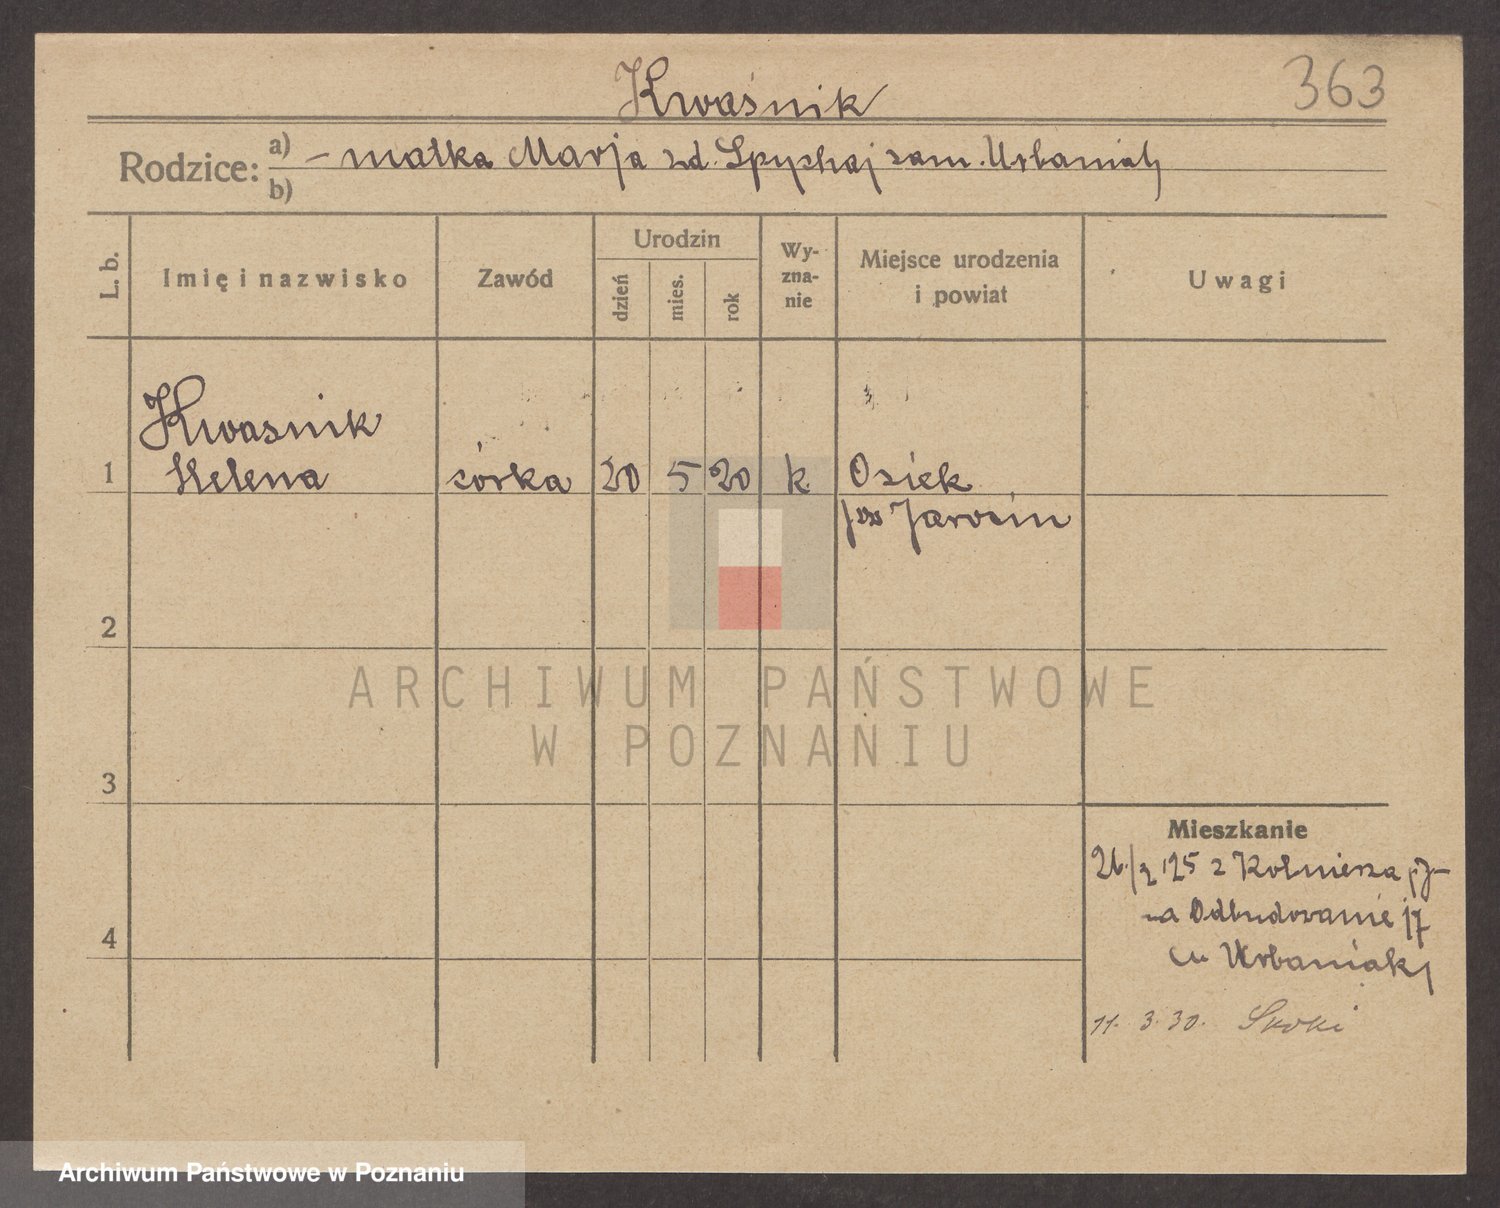 Kwaśnik
363
Rodzice: a) – matka Marja zd. Spychaj zam. Urbaniak
b)
L. b.
Imię i nazwisko
Zawód
Urodzin
dzień
mies.
rok
Wy-
zna-
nie
Miejsce urodzenia
i powiat
Uwagi
Kwasnik
1 Helena córka 20 5 20 k Osiek
Jarocin
2
ARCHIWUM PAŃSTWOWE
W POZNANIU
3
Mieszkanie
26/2 25 z Kołnierza
na Odbudowanie 17
(u Urbaniak)
4
11. 3. 30. Skoki
Archiwum Państwowe w Poznaniu